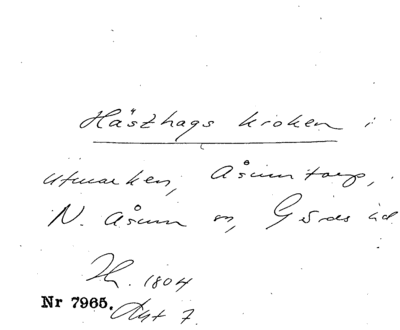 Hästhags kroken i
utmarken, Åsumtorp,
N. Åsum sn, Gärds hd
Lh. 1804
Nr 7965. Akt 7